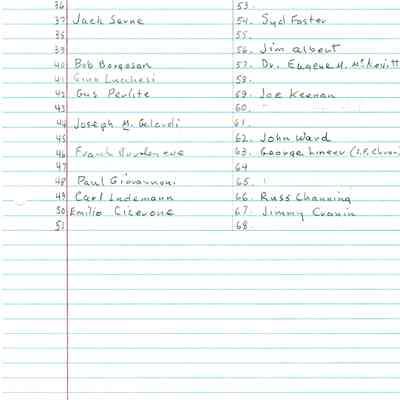 36 53.
37 Jack Sarne 54. Syd Foster
38 55.
39 56. Jim Albert
40 Bob Borgoson 57. Dr. Eugene M. McKevitt
41 Gino Lucchesi 58.
42 Gus Perlite 59. Joe Keenan
43 60.
44 Joseph M. Gelardi 61.
45 62. John Ward
46 Frank 63. George Lineer (S.F. Chron
47 64
48 Paul Giovannoni 65.
49 Carl Lindemann 66. Russ Channing
50 Emilio Cicerone 67. Jimmy Cronin
51 68.